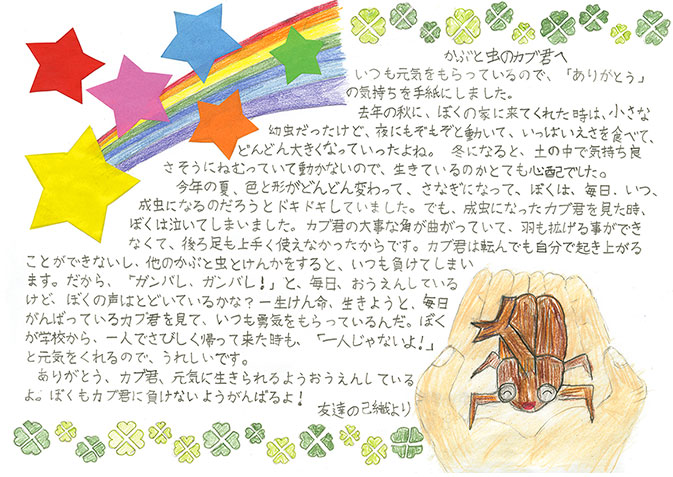 かぶと虫のカブ君へ
いつも元気をもらっているので、「ありがとう」
の気持ちを手紙にしました。
去年の秋に、ぼくの家に来てくれた時は、小さな
幼虫だったけど、夜にもぞもぞと動いて、いっぱいえさを食べて、
どんどん大きくなっていったよね。冬になると、土の中で気持ち良
さそうにねむっていて動かないので、生きているのかとても心配でした。
今年の夏、色と形がどんどん変わって、さなぎになって、ぼくは、毎日、いつ、
成虫になるのだろうとドキドキしていました。でも、成虫になったカブ君を見た時、
ぼくは泣いてしまいました。カブ君の大事な角が曲がっていて、羽も拡げる事ができ
なくて、後ろ足も上手く使えなかったからです。カブ君は転んでも自分で起き上がる
ことができないし、他のかぶと虫とけんかをすると、いつも負けてしまい
ます。だから、「ガンバレ、ガンバレ！」と、毎日、おうえんしている
けど、ぼくの声はとどいているかな？一生けん命、生きようと、毎日
がんばっているカブ君を見て、いつも勇気をもらっているんだ。ぼく
が学校から、一人でさびしく帰って来た時も、「一人じゃないよ！」
と元気をくれるので、うれしいです。
ありがとう、カブ君、元気に生きられるようおうえんしている
よ。ぼくもカブ君に負けないようがんばるよ！
友達の己織より